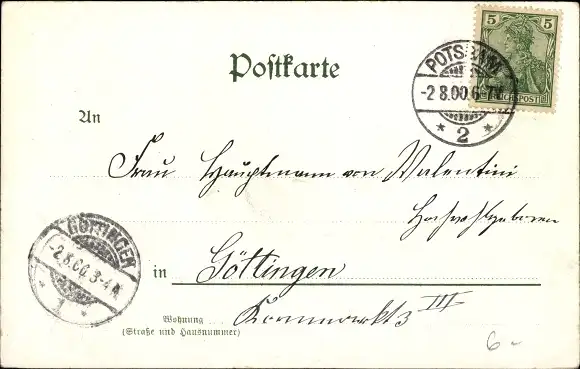 5 5
REICHSPOST
POTSDAM
-2 8.00.6-7N.
* 2 *
Postkarte
An
Frau Hauptmann von Valentini
Hochwohlgeboren
in Göttingen
Wohnung
(Straße und Hausnummer)
Kornmarkt 3 III
GÖTTINGEN
-2.8.00.3-4N.
* 1 *
6-